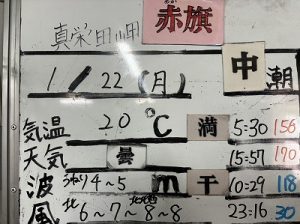 真栄田岬 赤旗
1/22(月) 中潮
気温 20℃ 満 5:30 156
天気 曇 15:57 170
波 うねり4~5m 干 10:29 118
風 北6~7~8~8 23:16 30